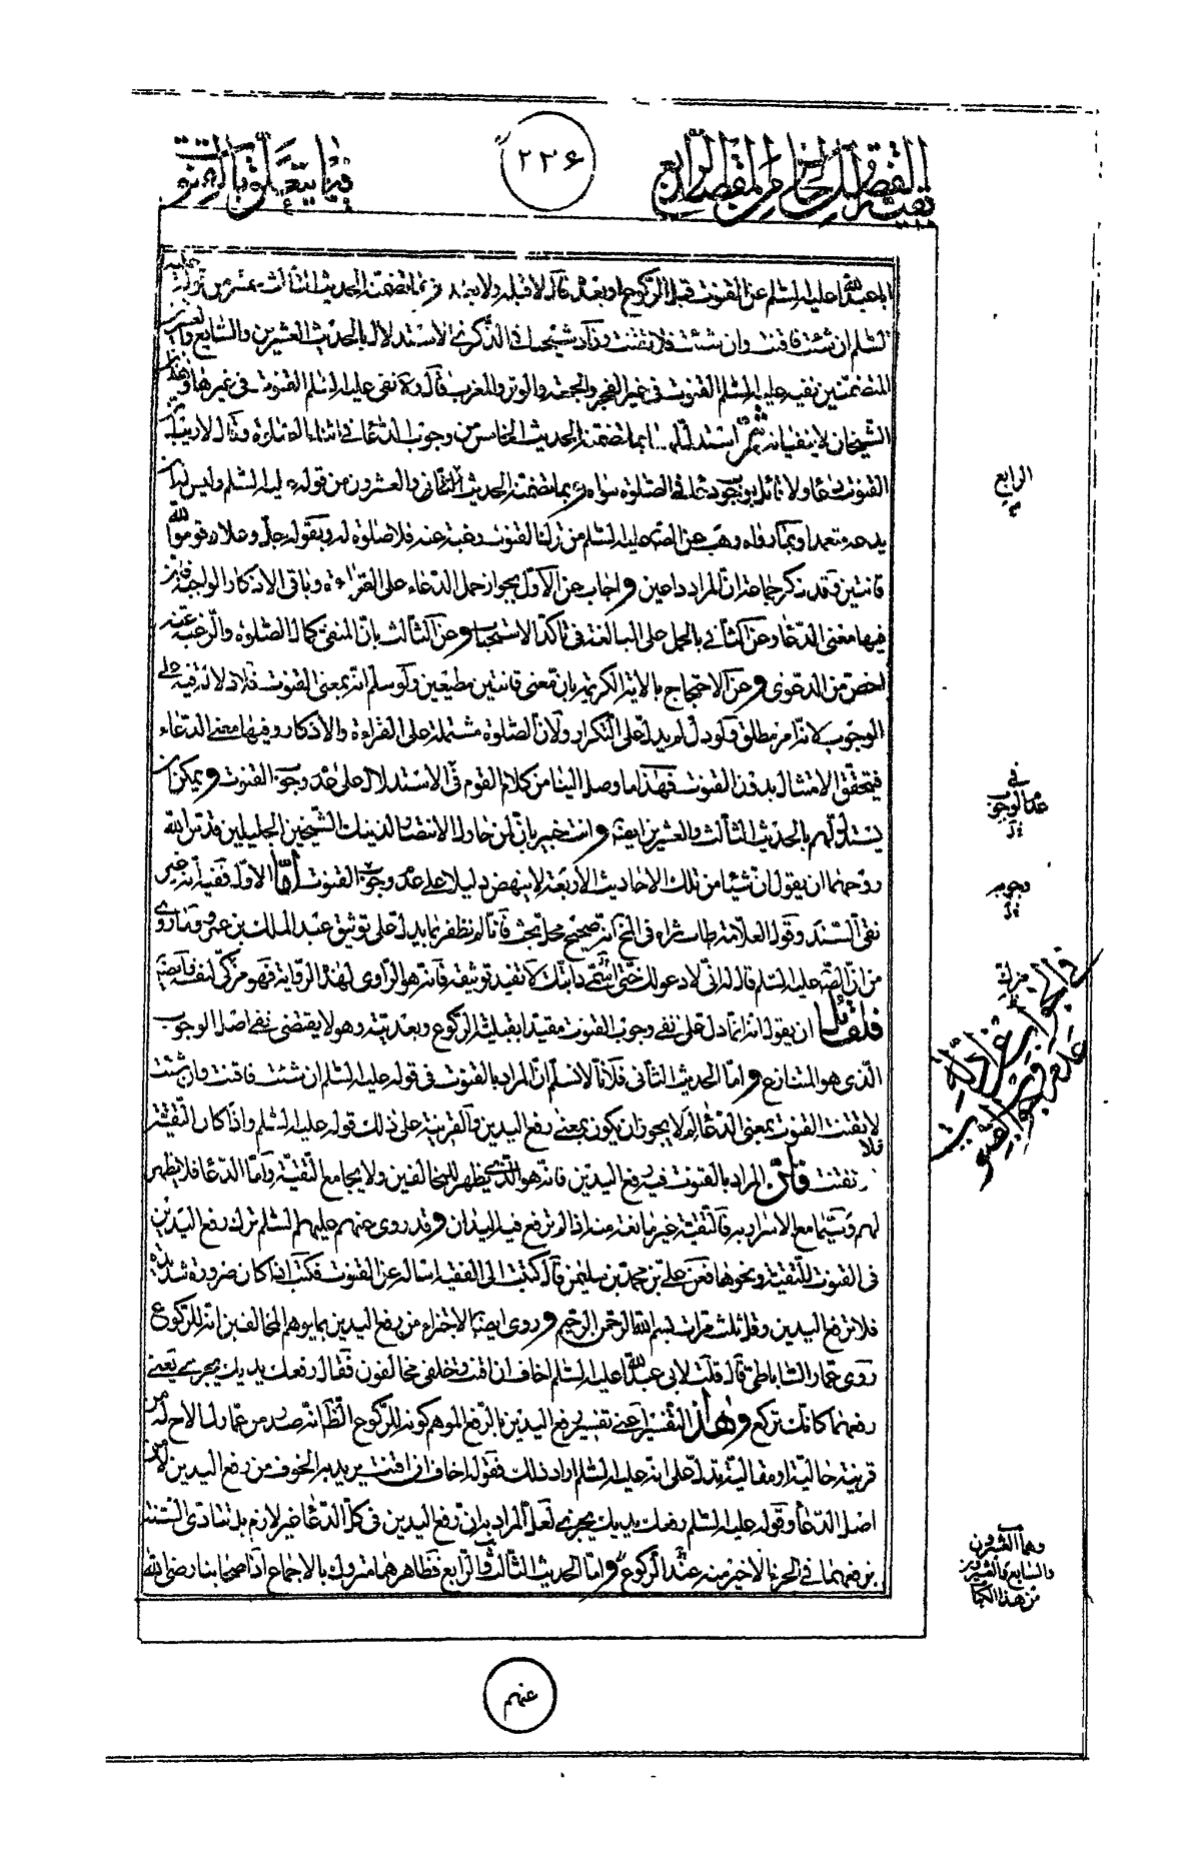 بقية الفصل الخامس من المقصد الرابع
٢٣۶
فيما يتعلق بالقنوت
ابا عبد الله عليه السلم عن القنوت قبل الركوع او بعده قال لا قبله ولا بعده وبما تضمنه الحديث الثالث عشر من قوله عليه
السلم ان شئت فاقنت وان شئت فلا تقنت وزاد شيخنا في الذكرى الاستدلال بالحديث العشرين والسابع والعشرين
المتضمنين نفيه عليه السلم القنوت في غير الفجر والجمعة والوتر والمغرب قال وقد نفى عليه السلم القنوت في غيرها وهذان
الشيخان لا ينفيانه ثم استدل لهما بما تضمنه الحديث الخامس من وجوب الدعاء في اثناء الصلوة وقال لا ريب ان
القنوت دعاء ولا قائل بوجوب دعاء في الصلوة سواه وبما تضمنه الحديث الثاني والعشرون من قوله عليه السلم وليس له ان
يدعه متعمدا وبما رواه وهب عن الصادق عليه السلم من ترك القنوت رغبة عنه فلا صلوة له وبقوله جل وعلا وقوموا لله
قانتين وقد ذكر جماعة ان المراد داعين واجاب عن الاول بجواز حمل الدعاء على القراءة وباقي الاذكار الواجبة فان
فيها معنى الدعاء وعن الثاني بالحمل على المبالغة في تاكد الاستحباب وعن الثالث بان المنفي كمال الصلوة والرغبة عنه
اخص من الدعوى وعن الاحتجاج بالاية الكريمة بان معنى قانتين مطيعين ولو سلم انه بمعنى القنوت فلا دلالة فيه على
الوجوب لانه امر مطلق ولو دل لم يدل على التكرار ولان الصلوة مشتملة على القراءة والاذكار وفيها معنى الدعاء
فيتحقق الامتثال بدون القنوت فهذا ما وصل الينا من كلام القوم في الاستدلال على عدم وجوب القنوت ويمكن ان
يستدل لهم بالحديث الثالث والعشرين ايضا وانت خبير بان لمن حاول الانتصار لذينك الشيخين الجليلين قدس الله
روحهما ان يقول ان شيئا من تلك الاحاديث الاربعة لا ينهض دليلا على عدم وجوب القنوت اما الاول ففيه انه غير
نقي السند وقول العلامة طاب ثراه في المخ انه صحيح محل بحث فانا لم نظفر بما يدل على توثيق عبد الملك بن عمرو وما روي
من ان الصادق عليه السلم قال له اني لادعو لك حتى اسمي دابتك لا يفيد توثيقه فانه هو الراوي لهذه الرواية فهو مزكي لنفسه وايضا
فلقائل ان يقول انه انما دل على نفي وجوب القنوت مقيدا بقبلية الركوع وبعديته وهو لا يقتضي نفي اصل الوجوب
الذي هو المتنازع واما الحديث الثاني فلانا لا نسلم ان المراد بالقنوت في قوله عليه السلم ان شئت فاقنت وان شئت
لا تقنت القنوت بمعنى الدعاء لم لا يجوز ان يكون بمعنى رفع اليدين والقرينة على ذلك قوله عليه السلم واذا كان التقية فلا
تقنت فان المراد بالقنوت فيه رفع اليدين فانه هو الذي يظهر للمخالفين ولا يجامع التقية واما الدعاء فلا يظهر
لهم وسيما مع الاسرار به فالتقية غير مانعة منه اذا لم ترفع فيه اليدان وقد روي عنهم عليهم السلم ترك رفع اليدين
في القنوت للتقية ونحوها فعن علي بن محمد بن سليمن قال كتبت الى الفقيه اساله عن القنوت فكتب اذا كان ضرورة شديدة
فلا ترفع اليدين وقل ثلث مرات بسم الله الرحمن الرحيم وروي ايضا الاجتزاء من رفع اليدين بما يوهم المخالفين انه للركوع
روى عمار الساباطي قال قلت لابي عبد الله عليه السلم اخاف ان اقنت وخلفي مخالفون فقال رفعك يديك يجزي يعني
رفعهما كانك تركع وهذا التفسير اعني تفسير رفع اليدين بالرفع الموهم كونه للركوع الظ انه صدر من عمار لما لاح له من
قرينة حالية او مقالية تدل على انه عليه السلم اراد ذلك فقوله اخاف ان اقنت يريد به الخوف من رفع اليدين لا من
اصل الدعاء وقوله عليه السلم رفعك يديك يجزي لعل المراد به ان رفع اليدين في كل الدعاء غير لازم بل تتادى السنة
برفعهما في الجزء الاخير منه عند الركوع واما الحديث الثالث والرابع فظاهرهما متروك بالاجماع اذ اصحابنا رضي الله
الرابع
في
عدم الوجوب
وجوبه
وهما العشرون
والسابع والعشرون
من هذا الكتاب
عنهم